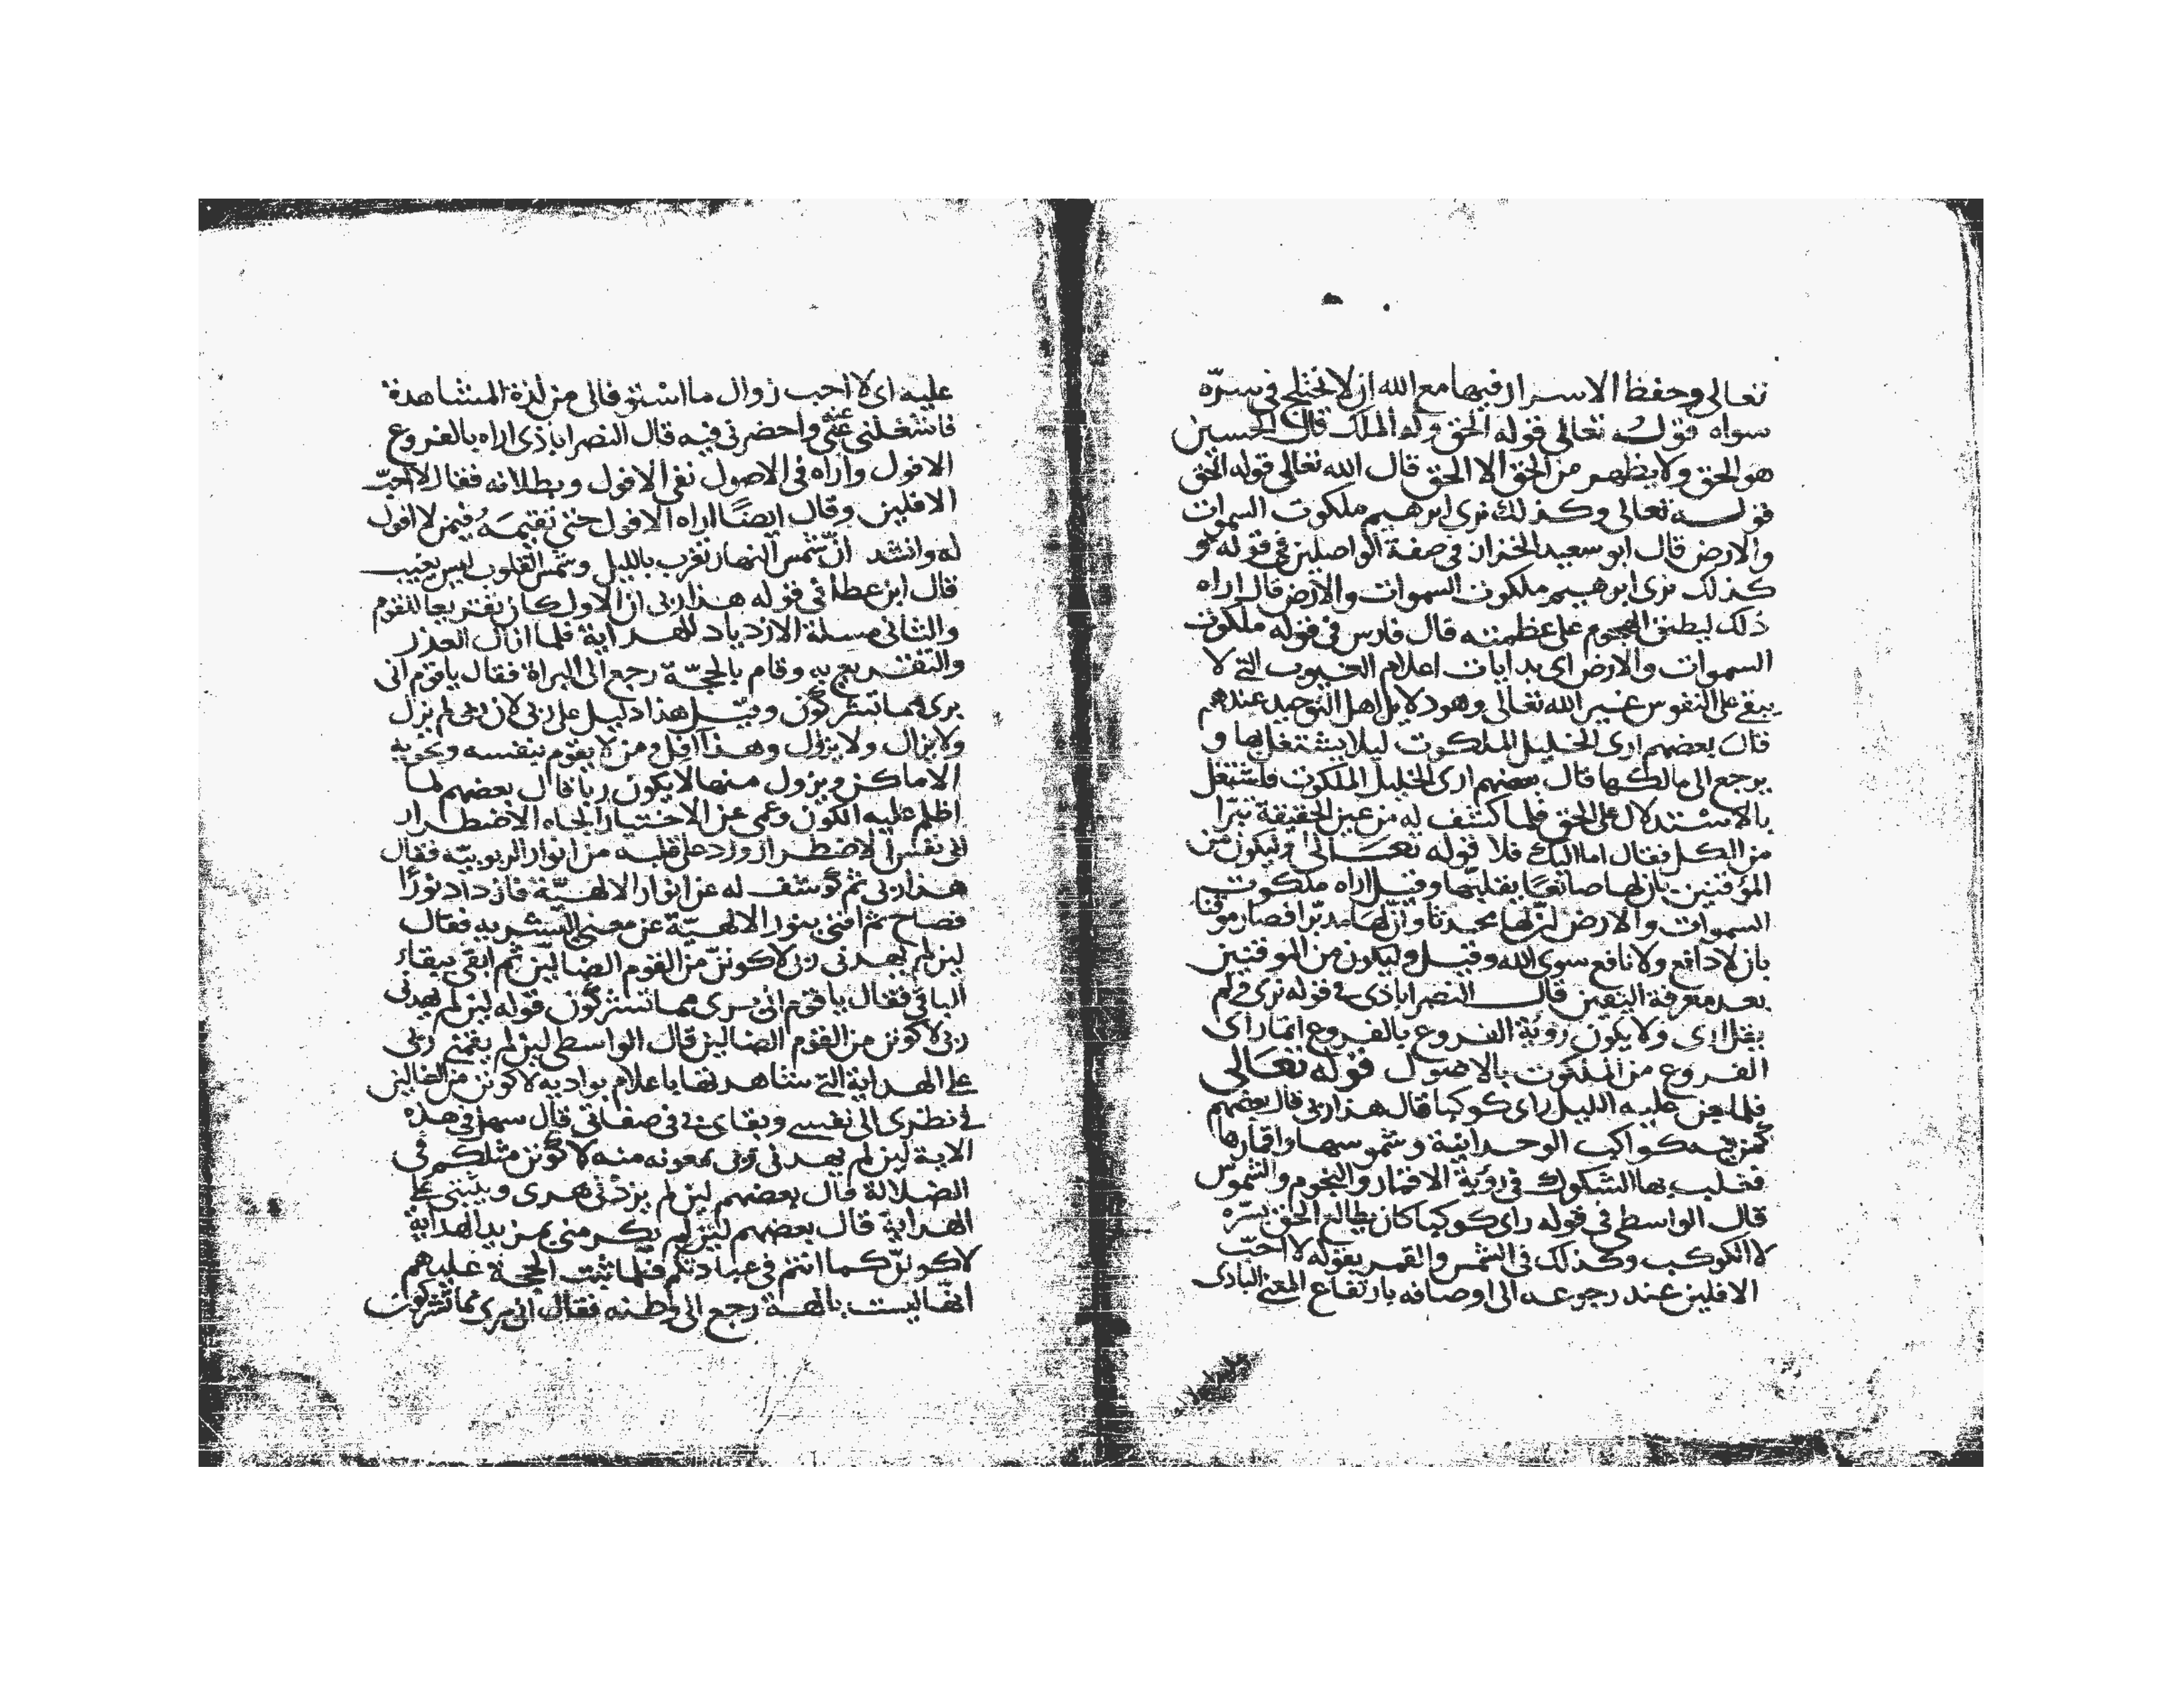 تعالى وحفظ الاسرار فيها مع الله ان لا يختلج في سرّه
سواه قوله تعالى قوله الحق وله الملك قال الحسين
هو الحق ولا يظهر من الحق الا الحق قال الله تعالى قوله الحق
قوله تعالى وكذلك نرى ابرهيم ملكوت السموات
والارض قال ابو سعيد الخزاز في صفة الواصلين في قوله و
كذلك نرى ابرهيم ملكوت السموات والارض قال اراه
ذلك ليطيق الهجوم على عظمته قال فارس في قوله ملكوت
السموات والارض اى بدايات اعلام الغيوب التي لا
يبقي على النفوس غير الله تعالى وهو دلايل اهل التوحيد عندهم
قال بعضهم ارى الخليل الملكوت ليلا يشتغل بها و
يرجع الى مالكها قال بعضهم ارى الخليل الملكوت فاشتغل
بالاستدلال على الحق فلما كشف له من عين الحقيقة تبرّا
من الكل فقال اما اليك فلا قوله تعالى وليكون من
الموقنين بان لها صانعًا يقلبها وقيل اراه ملكوت
السموات والارض لانّ لها محدثا وانّ لها مدبّرا فصار موقنا
بان لا دافع ولا نافع سوى الله وقيل وليكون من الموقنين
بعد معرفة اليقين قال النصراباذى في قوله نرى ولم
يقل راى ولا يكون روية الفروع بالفروع انما راى
الفروع من الملكوت بالاصول قوله تعالى
فلما جن عليه الليل راى كوكبا قال هذا ربى قال بعضهم
كواكب الوحدانية وشموسها واقمارها
بها الشكوك في روية الاقمار والنجوم والشموس
قال الواسطى في قوله راى كوكبا كان يطالع الحق بسرّه
لا الكوكب وكذلك في الشمس والقمر بقوله لا احبّ
الافلين عند رجوعه الى اوصافه بارتفاع المعنى البادى
عليه اى لا احب زوال ما استوفالى من لذة المشاهدة
فاشغلنى عنّى واحضرنى فيه قال النصراباذى اراه بالفروع
الافول واراه في الاصول نفى الافول وبطلانه فقال لا احبّ
الافلين وقال ايضًا اراه الافول حتي فيمن لا افول
له وانشد انّ شمس النهار تغرب بالليل وشمس القلوب ليس يغيب
قال ابن عطا في قوله هذا ربى ان الاول كان تقريعا للقوم
والثانى مسلة الازدياد للهداية فلما ازال العذر
والتقريع به وقام بالحجّة رجع الى البراة فقال يا قوم انى
برى مما تشركون وقيل هذا دليل على ربى لان ربى لم يزل
ولا يزال ولا يزول وهذا افل ومن لا يقوم بنفسه وتحويه
الاماكن ويزول منها لا يكون ربا قال بعضهم لما
اظلم عليه الكون وعمى عن الاختيار الجاه الاضطرار
الى نفس الاضطرار ورد على قلبه من انوار الربوبيّة فقال
هذا ربى ثم كوشف له عن انوار الالهيّة فازداد نورًا
فصاح ثم افنى بنور الالهيّة عن معنى البشرية فقال
لين لم يهدنى ربى لاكوننّ من القوم الضالين ثم ابقى ببقاء
الباقي فقال يا قوم انى برى مما تشركون قوله لين لم يهدنى
ربى لاكونن من القوم الضالين قال الواسطى لين لم يقمنى ربى
على الهداية التي شاهدتها باعلام بواديه لاكونن من الضالين
في نظرى الى نفسى وبقاى في صفاتى قال سهل في هذه
الاية لين لم يهدنى ربى بمعونه منه لاكونن مثلكم في
الضلالة قال بعضهم لين لم يزدنى هدى ويثبتنى على
الهداية قال بعضهم لين لم يكرمنى بمزيد الهداية
لاكوننّ كما انتم في عبادتكم فلما ثبت الحجة عليهم
انها ليست بالهة رجع الى وطنه فقال انى برى مما تشركون